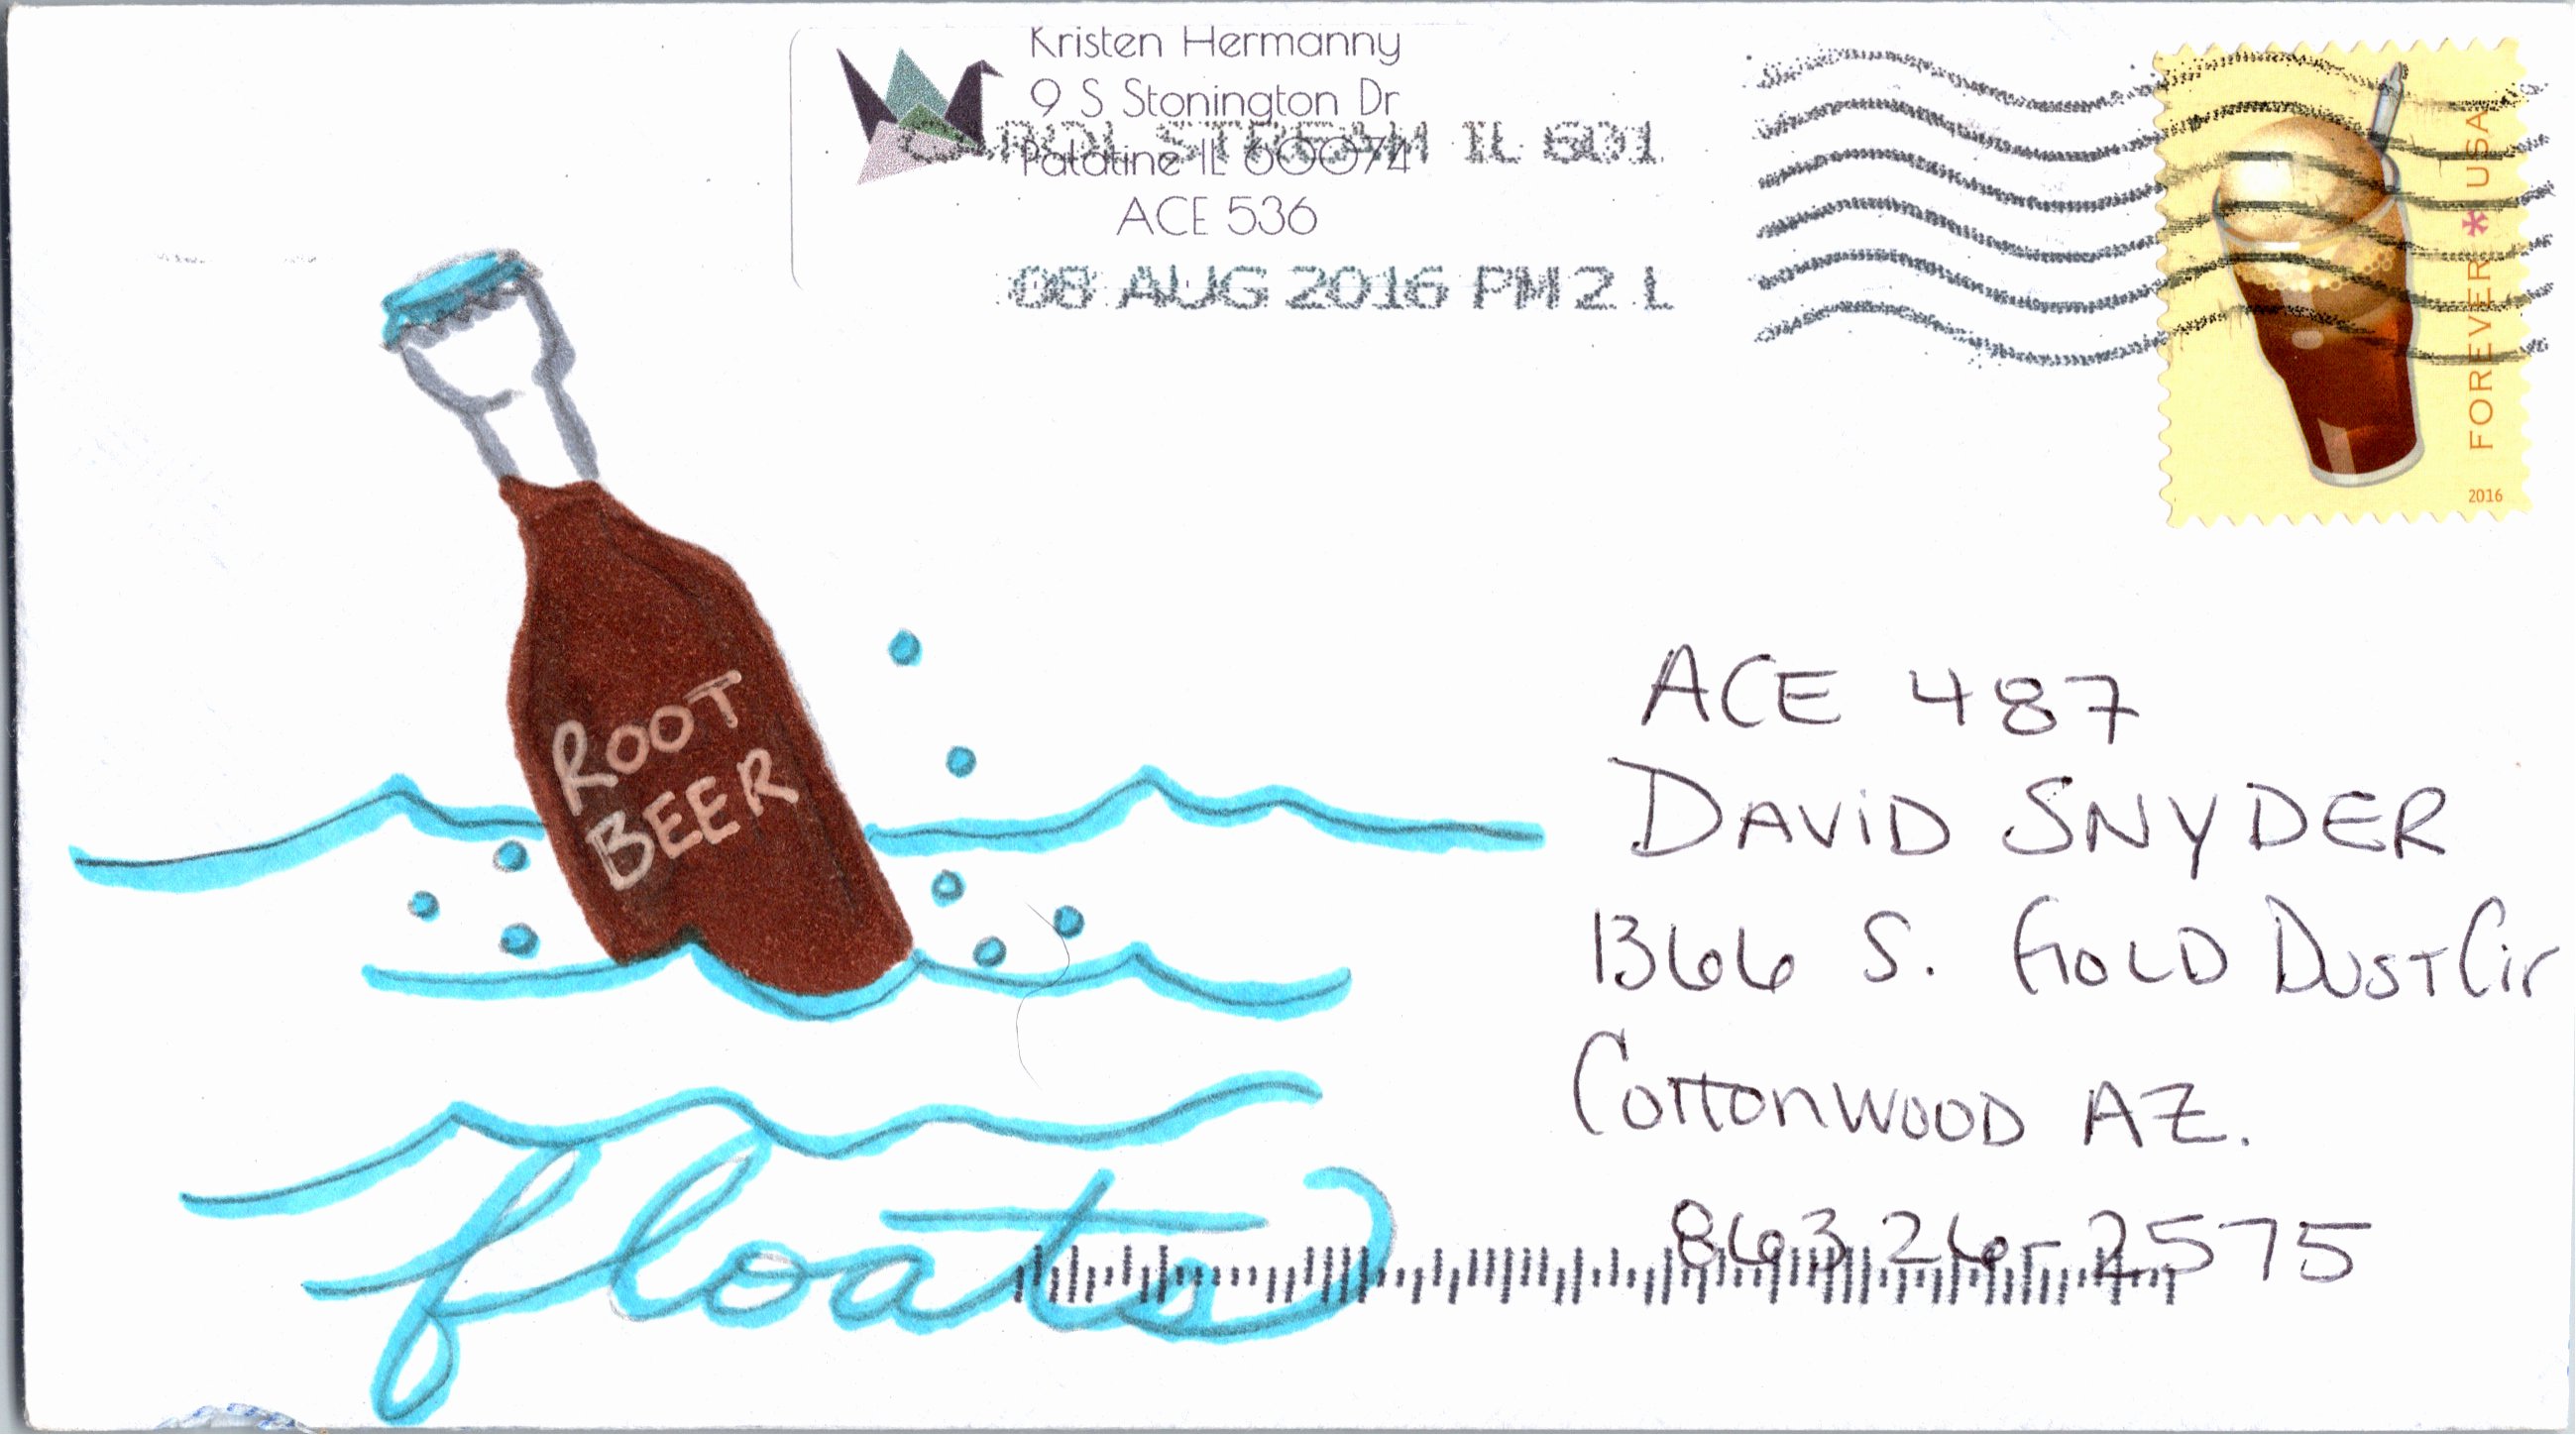 Kristen Hermanny
9 S Stonington Dr
Palatine IL 60074
ACE 536
CAROL STREAM IL 601
08 AUG 2016 PM 2 L
FOREVER * USA
2016
ROOT
BEER
floats
ACE 487
DAVID SNYDER
1366 S. GOLD DUST Cir
COTTONWOOD AZ.
86326-2575